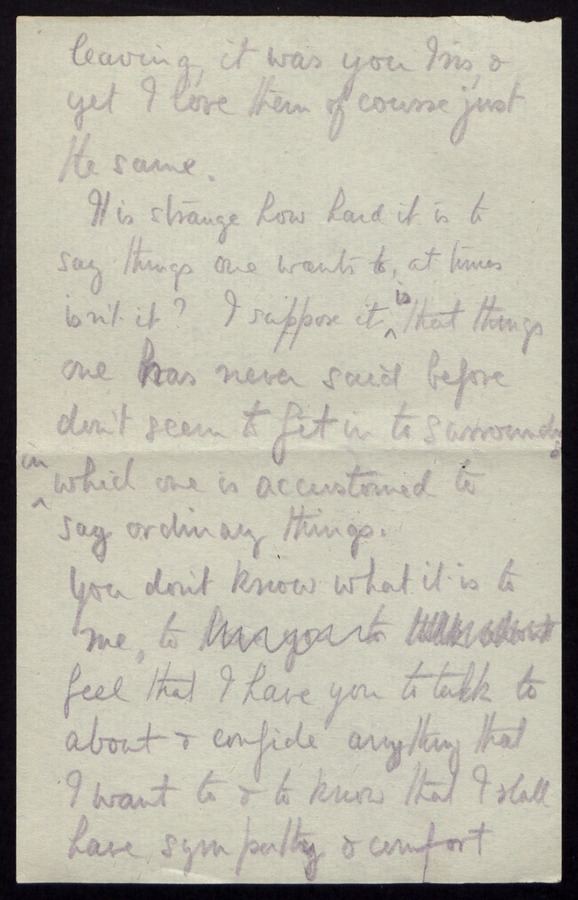 leaving, it was you Iris, &
yet I love them of course just
the same.
It is strange how hard it is to
say things one wants to, at times
isn't it? I suppose it is that things
one has never said before
don't seem to fit in to surroundgs
in which one is accustomed to
say ordinary things.
You don't know what it is to
me, to
feel that I have you to talk to
about & confide anything that
I want to & to know that I shall
have sympathy & comfort